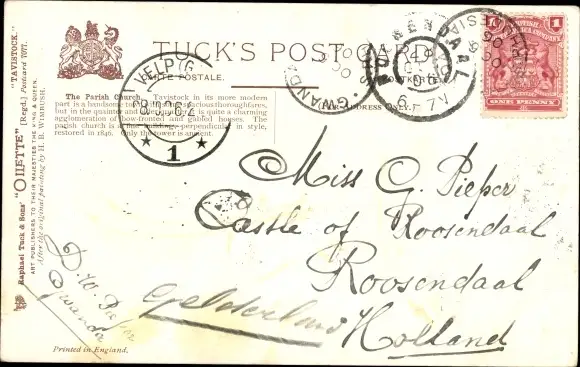 TUCK'S POST CARD
CARTE POSTALE.
The Parish Church. Tavistock in its more modern
part is a handsome
is quite a charming
agglomeration of bow-fronted and gabled houses. The
parish church is a fine building perpendicular in style,
restored in 1846. Only the tower is ancient.
"TAVISTOCK."
[Regd.] Postcard 7077.
Raphael Tuck & Sons' "OILETTE"
ART PUBLISHERS TO THEIR MAJESTIES THE KING & QUEEN.
After the original painting by H. B. WIMBUSH.
VELP
1
GWANDA
ROOSENDAAL
1
1
ONE PENNY
Miss G. Pieper
Castle of Roosendaal
Roosendaal
Gelderland
Holland
D. W. Pieper
Gwanda
Printed in England.